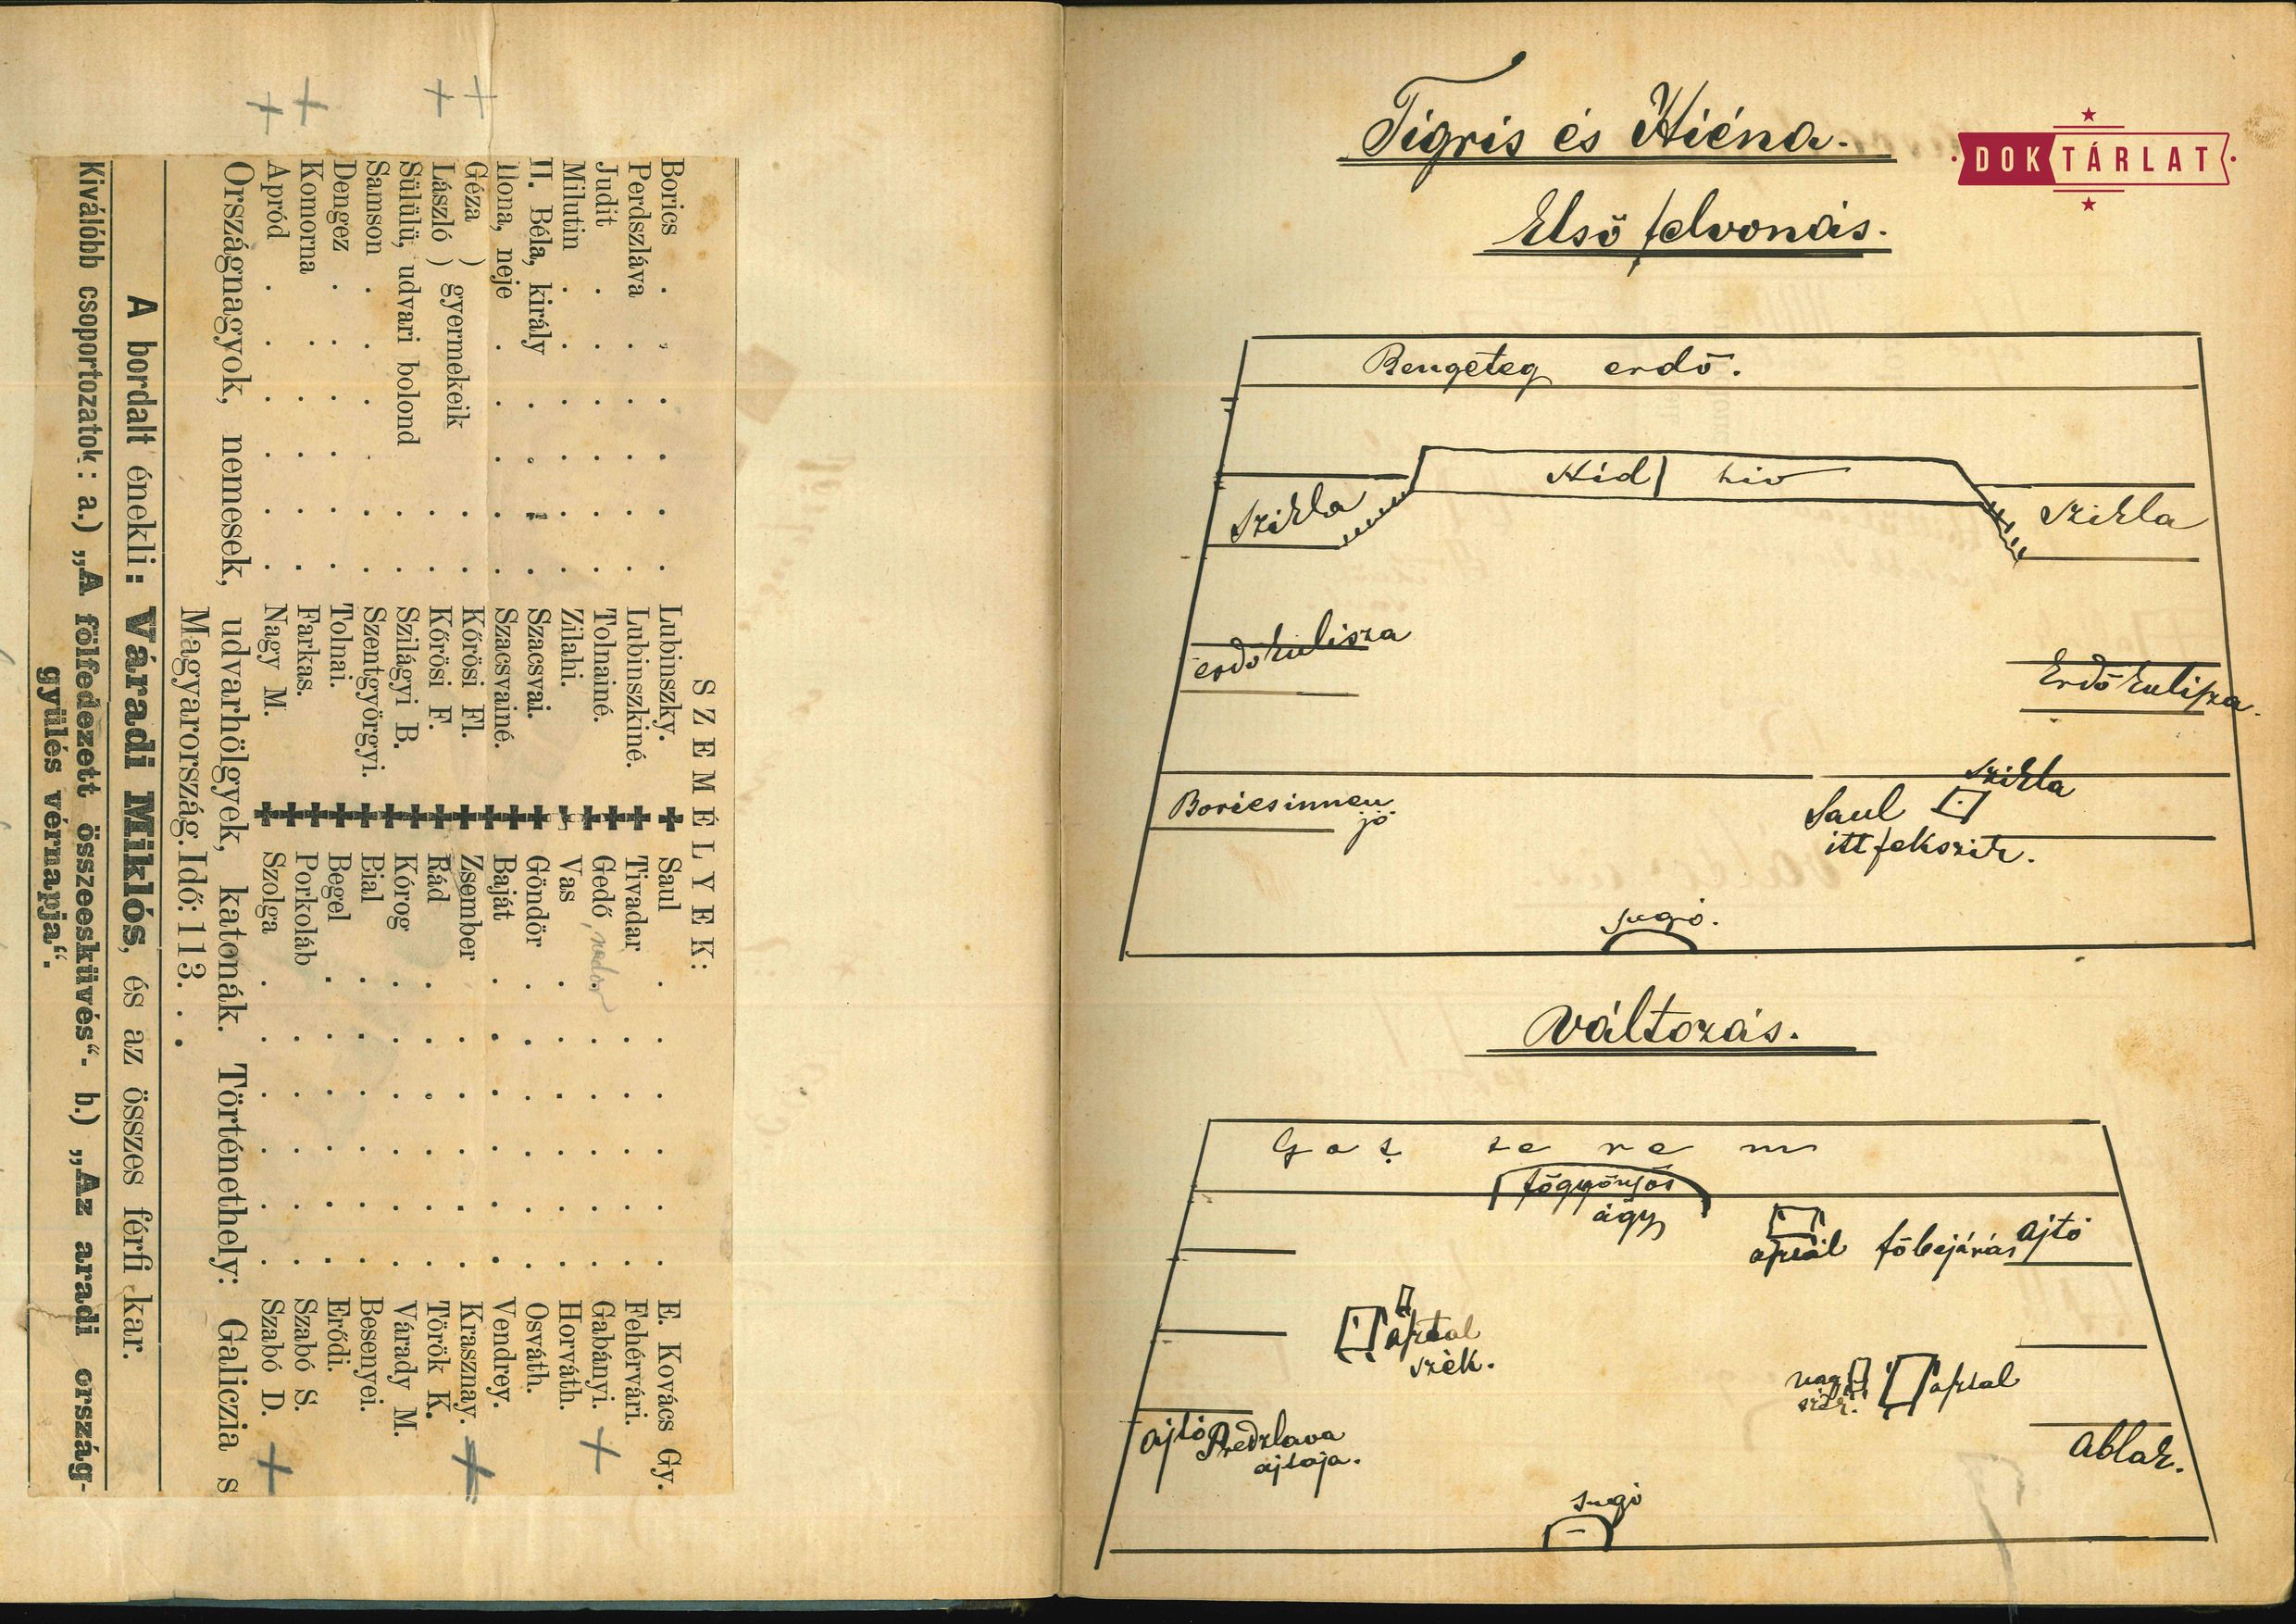 SZEMÉLYEK:
Borics . . . . . . Lubinszky.
Perdszláva . . . . . Lubinszkiné.
Judit . . . . . . Tolnainé.
Milutin . . . . . . Zilahi.
II. Béla, király . . . Szacsvai.
Ilona, neje . . . . . Szacsvainé.
Géza ) gyermekeik . . Kőrösi Fl.
László ) . . Kőrösi F.
Sülülü, udvari bolond . . Szilágyi B.
Samson . . . . . . Szentgyörgyi.
Dengez . . . . . . Tolnai.
Komorna . . . . . Farkas.
Apród . . . . . . Nagy M.
Saul . . . . . . E. Kovács Gy.
Tivadar . . . . . . Fehérvári.
Gedő, nador . . . . . Gabányi.
Vas . . . . . . Horváth.
Göndör . . . . . . Osváth.
Baját . . . . . . Vendrey.
Zsember . . . . . Krasznay.
Rád . . . . . . Török K.
Kórog . . . . . . Várady M.
Bial . . . . . . Besenyei.
Begel . . . . . . Erődi.
Porkoláb . . . . . Szabó S.
Szolga . . . . . . Szabó D.
Országnagyok, nemesek, udvarhölgyek, katonák. Történethely: Galiczia s
Magyarország. Idő: 113. . .
A bordalt énekli: Váradi Miklós, és az összes férfi kar.
Kiválóbb csoportozatok: a.) „A fölfedezett összeesküvés“. b.) „Az aradi ország-
gyülés vérnapja“.
Tigris és Hiéna.
DOKTÁRLAT
Első felvonás.
Rengeteg erdő.
Híd hid
Szikla
Szikla
erdő kulisza
Erdő kulisza.
Borics innen
jő
szikla
Saul
itt fekszik.
sugó.
Változás.
Got terem
függönyös
ágy
asztal főbejárás ajtó
asztal
szék.
nagy
szék.
asztal
ajtó Predzlava
ajtaja.
Ablak.
sugó